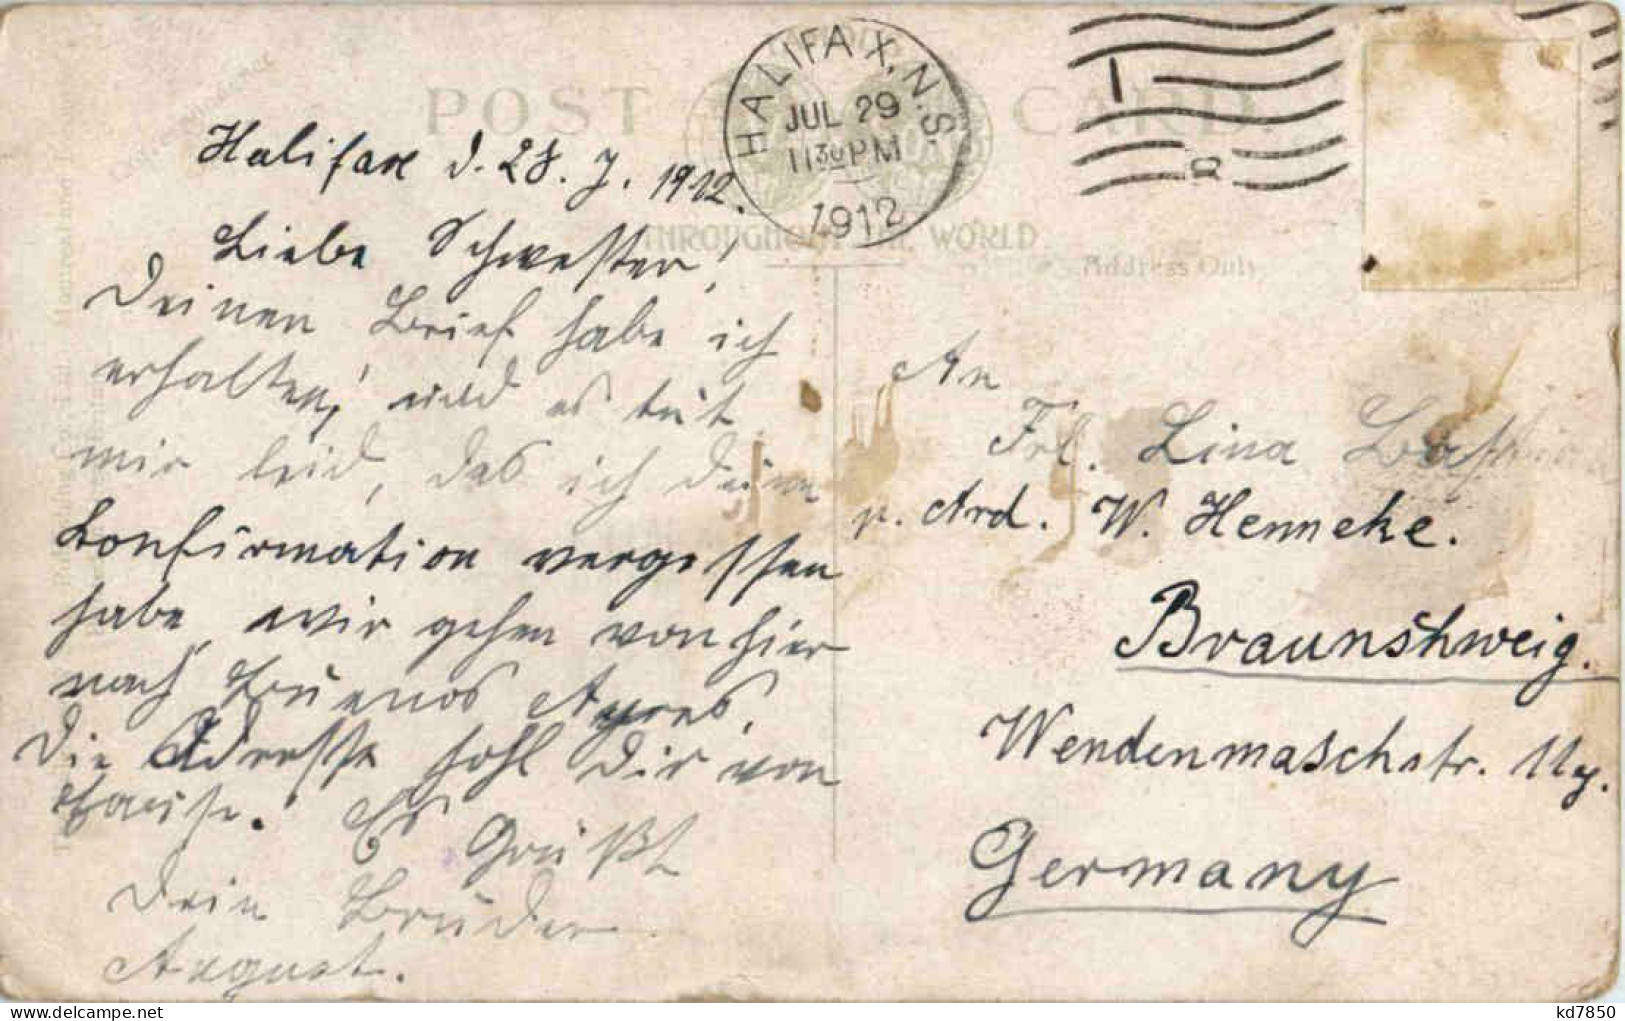 POST CARD.
HALIFAX, N.S.
JUL 29
11 30 PM
1912
THROUGHOUT THE WORLD
Address Only
Halifax d. 28. 7. 1912.
Liebe Schwester!
Deinen Brief habe ich
erhalten, und es tut
mir leid, das ich deine
Konfirmation vergessen
habe, wir gehen von hier
nach Buenos Ayres.
Die Adresse hohl dir von
Hause. Es Grüßt
Dein Bruder
August.
An
Frl. Lina
p. Ard. W. Henneke.
Braunshweig.
Wendenmaschstr.
Germany
kd7850